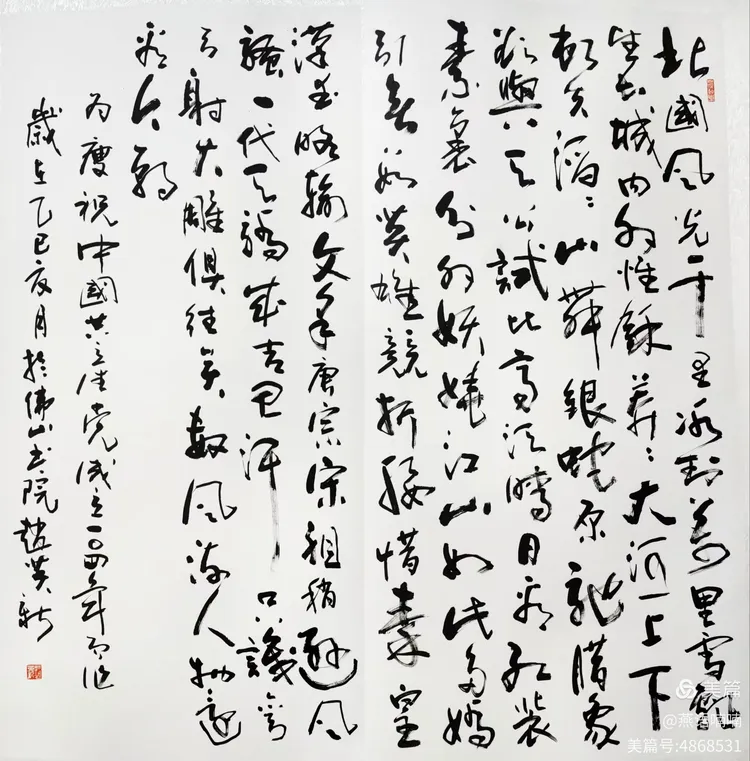 北國风光千里冰封萬里雪飘
望长城内外惟餘莽〻大河上下
顿失滔〻山舞银蛇原驰腊象
欲與天公試比高须晴日看红装
素裹分外妖娆江山如此多嬌
引无数英雄競折腰惜秦皇
漢武略输文采唐宗宋祖稍遜风
骚一代天骄成吉思汗只識弯
弓射大雕俱往矣数风流人物还
看今朝
为慶祝中國共产党成立一〇四年而作
歲在乙巳夏月於佛山书院趙英新
美篇
美篇号:4868531